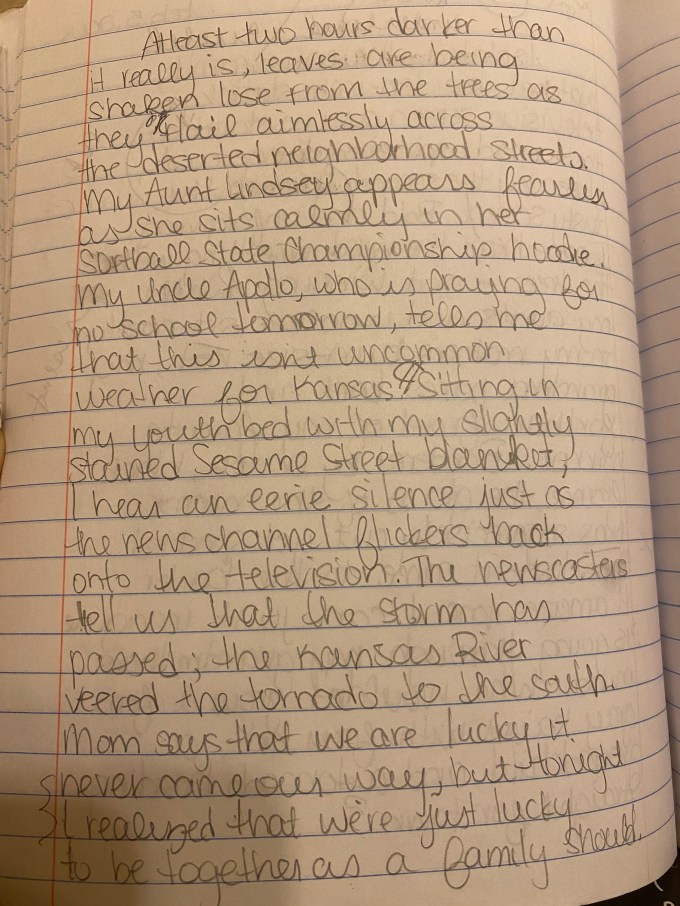 Atleast two hours darker than
it really is, leaves are being
shaken lose from the trees as
they flail aimlessly across
the deserted neighborhood streets.
My Aunt Lindsey appears fearless
as she sits calmly in her
softball State Championship hoodie.
My Uncle Apollo, who is praying for
no school tomorrow, tells me
that this isn't uncommon
weather for Kansas. Sitting in
my youth bed with my slightly
stained Sesame Street blanket,
I hear an eerie silence just as
the news channel flickers back
onto the television. The newscasters
tell us that the storm has
passed; the Kansas River
veered the tornado to the south.
Mom says that we are lucky it
never came our way, but tonight
I realized that we're just lucky
to be together as a family should.